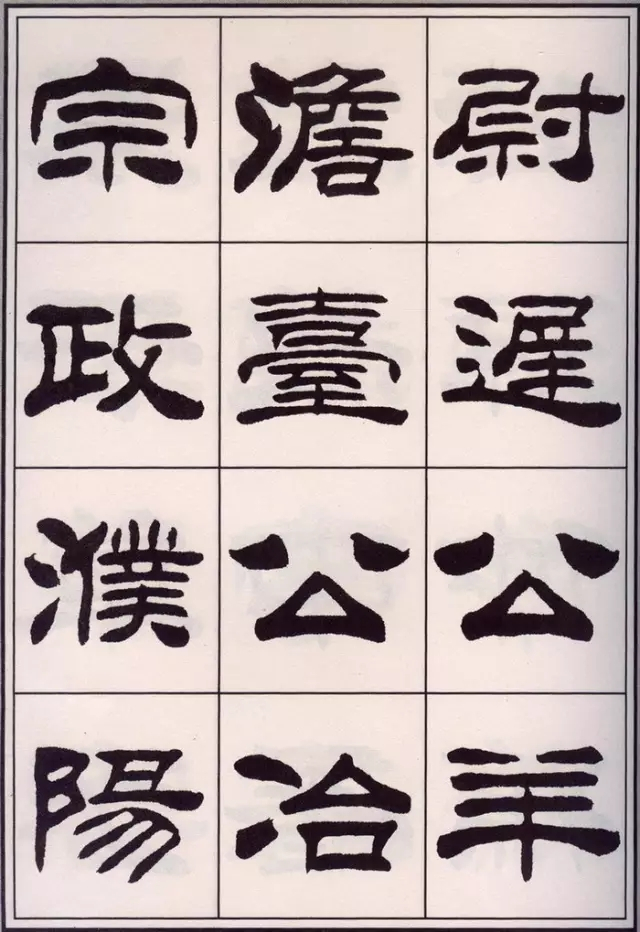 尉遲公羊
澹臺公冶
宗政濮陽